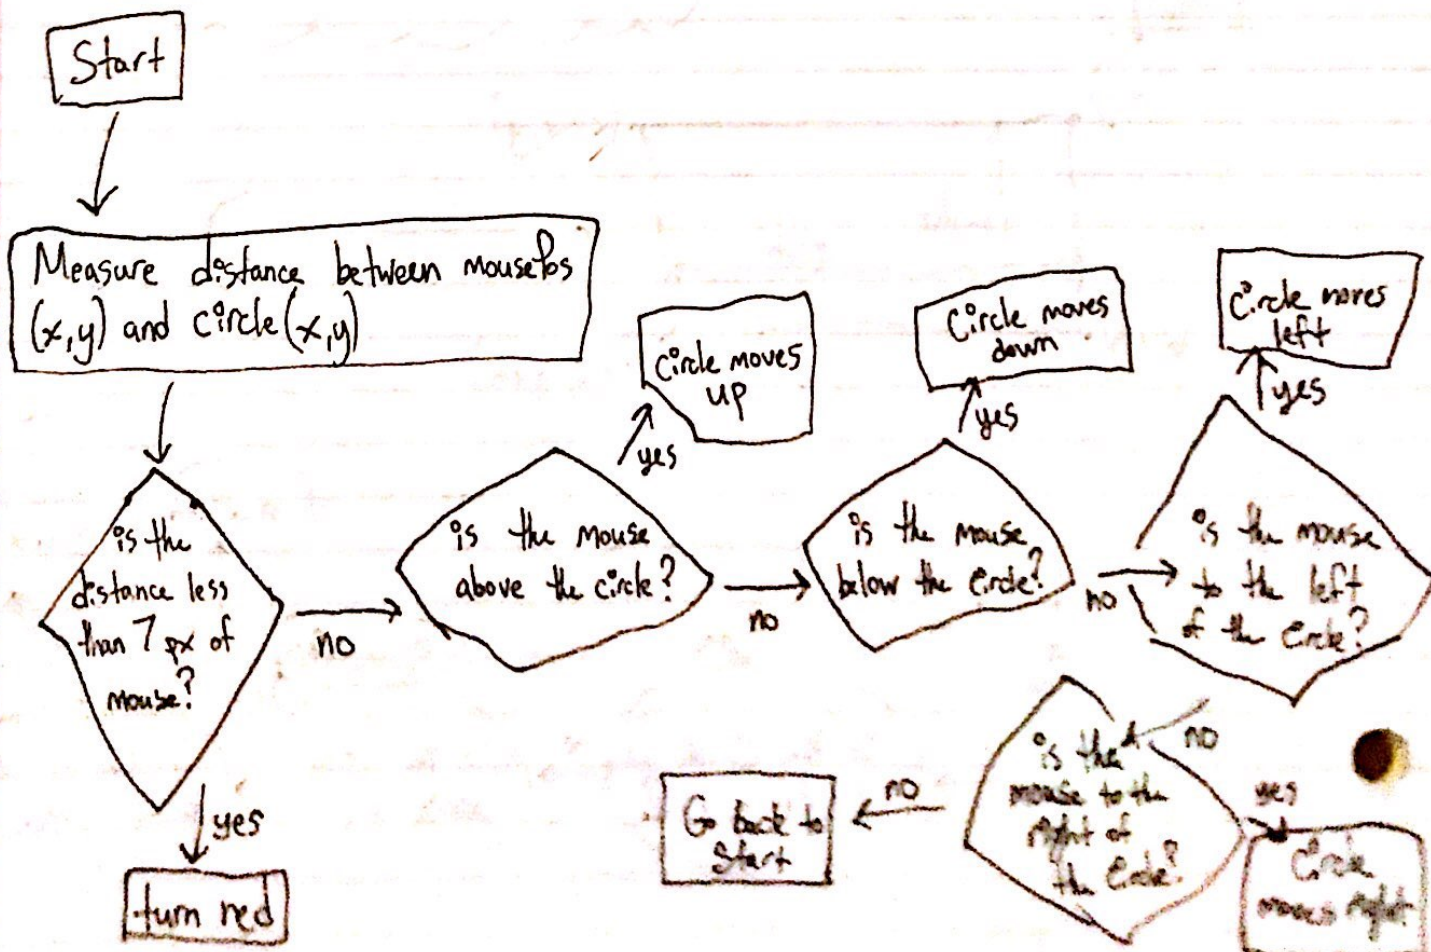 Start
Measure distance between mousePos
(x,y) and circle(x,y)
is the
distance less
than 7 px of
mouse?
yes
turn red
no
is the mouse
above the circle?
yes
Circle moves
up
no
is the mouse
below the circle?
yes
Circle moves
down
no
is the mouse
to the left
of the circle?
yes
Circle moves
left
no
is the
mouse to the
right of
the circle?
yes
Circle
moves right
no
Go back to
Start